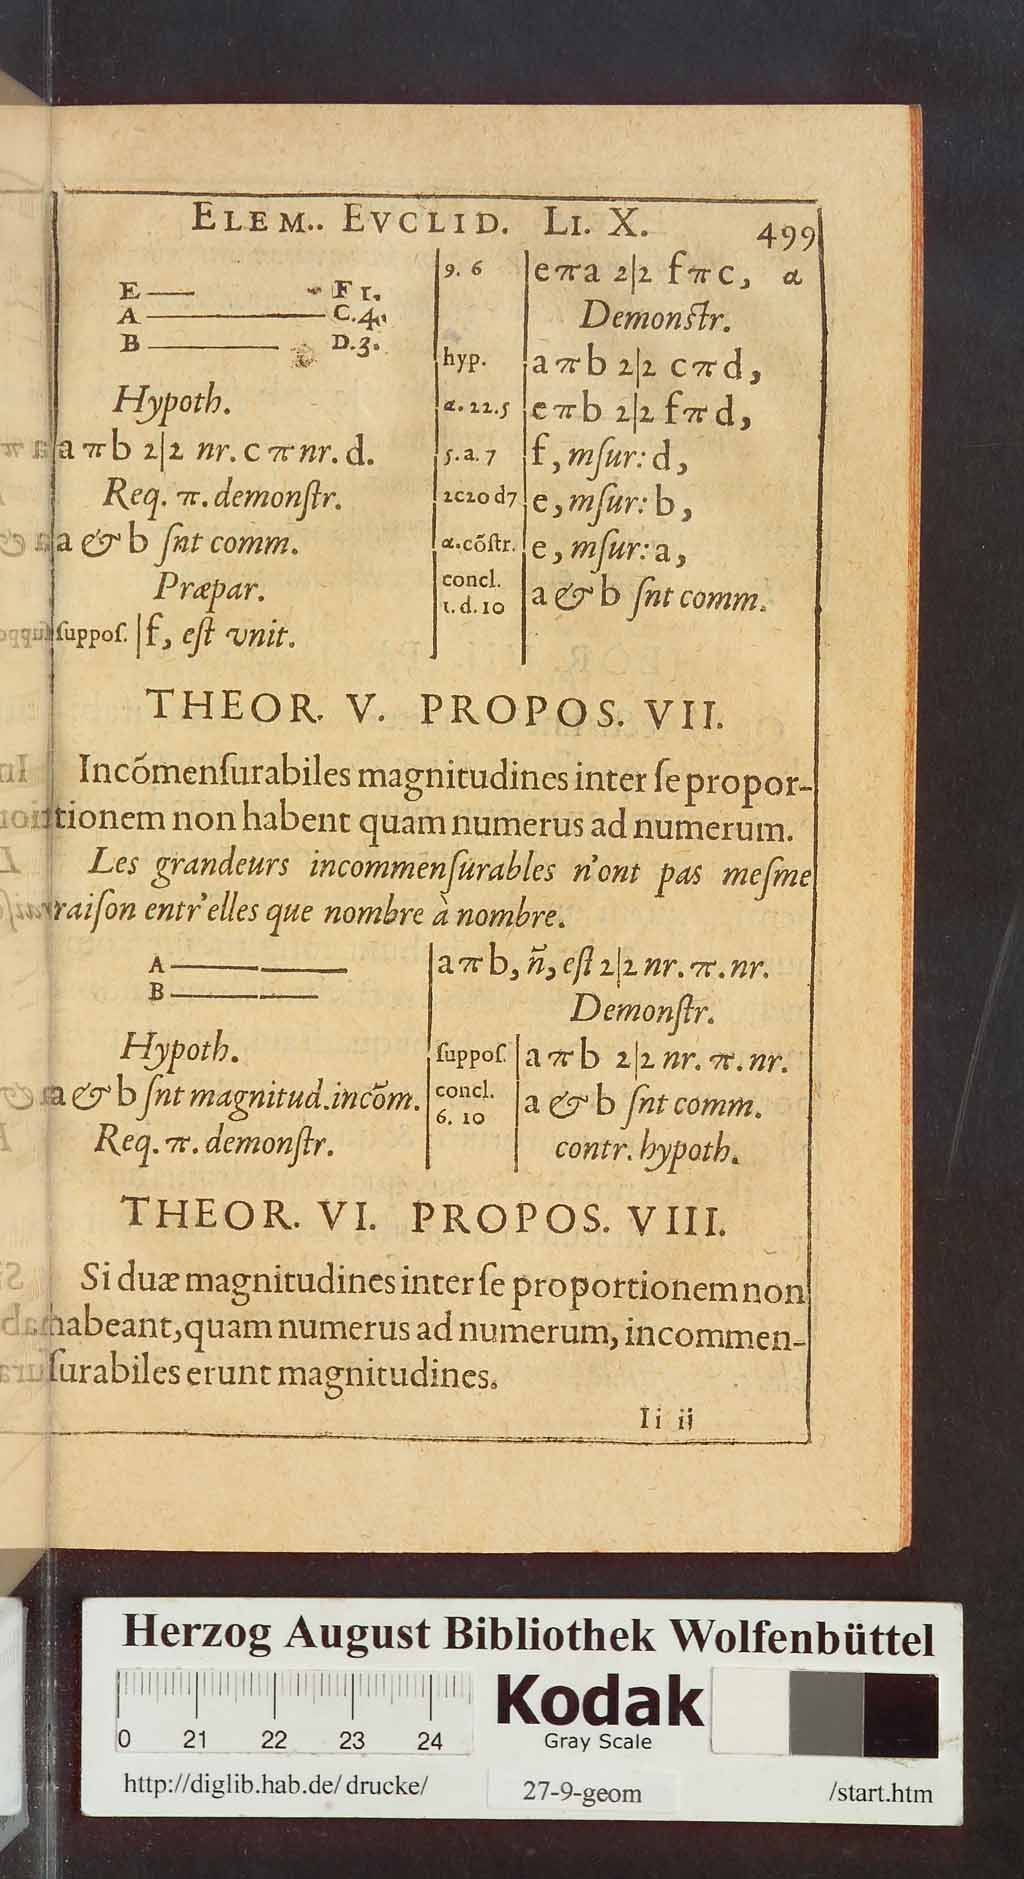 ELEM.. EVCLID. LI. X. 499
E F 1.
A C. 4.
B D. 3.
Hypoth.
a π b 2|2 nr. c π nr. d.
Req. π. demonſtr.
a & b ſnt comm.
Præpar.
ſuppoſ. | f, eſt vnit.
9. 6 | e π a 2|2 f π c, α
Demonſtr.
hyp. | a π b 2|2 c π d,
α. 22. 5 | e π b 2|2 f π d,
5. a. 7 | f, mſur: d,
2c20d7 | e, mſur: b,
α. cõſtr. | e, mſur: a,
concl.
1. d. 10 | a & b ſnt comm.
THEOR. V. PROPOS. VII.
Incõmenſurabiles magnitudines inter ſe propor-
tionem non habent quam numerus ad numerum.
Les grandeurs incommenſurables n'ont pas meſme
raiſon entr'elles que nombre à nombre.
A
B
Hypoth.
a & b ſnt magnitud. incõm.
Req. π. demonſtr.
a π b, ñ, eſt 2|2 nr. π. nr.
Demonſtr.
ſuppoſ. | a π b 2|2 nr. π. nr.
concl.
6. 10 | a & b ſnt comm.
contr. hypoth.
THEOR. VI. PROPOS. VIII.
Si duæ magnitudines inter ſe proportionem non
habeant, quam numerus ad numerum, incommen-
ſurabiles erunt magnitudines.
Ii ii
Herzog August Bibliothek Wolfenbüttel
0 21 22 23 24
Kodak
Gray Scale
http://diglib.hab.de/drucke/ 27-9-geom /start.htm